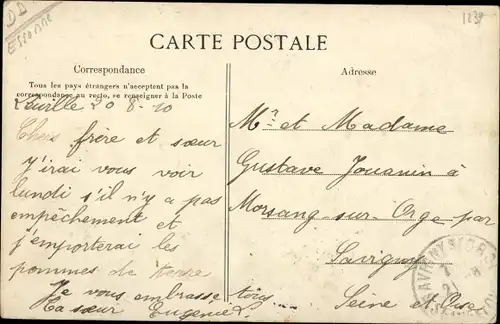 DD
ESSONNE
1239
CARTE POSTALE
Correspondance
Adresse
Tous les pays étrangers n'acceptent pas la
correspondance au recto, se renseigner à la Poste
20-8-10
Chers frère et sœur
J'irai vous voir
lundi s'il n'y a pas
empêchement et
j'emporterai les
pommes de terre
Je vous embrasse tous
Ta sœur Eugénie L.
Mr et Madame
Gustave Jouanin à
Morsang-sur-Orge par
Savigny
Seine et Oise
SAVIGNY S/ORGE